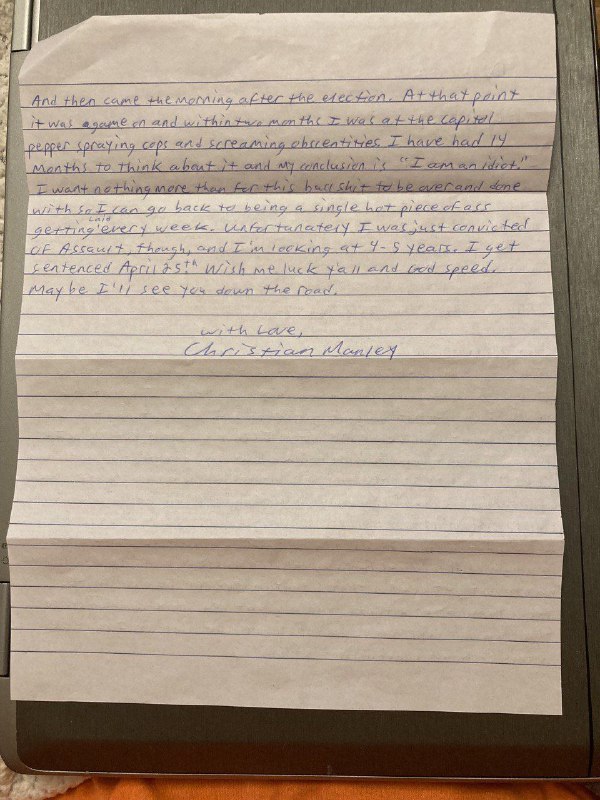 And then came the morning after the election. At that point
it was game on and within two months I was at the capitol
pepper spraying cops and screaming obscentities. I have had 14
months to think about it and my conclusion is "I am an idiot."
I want nothing more than for this bullshit to be over and done
with so I can go back to being a single hot piece of ass
getting laid every week. Unfortunately I was just convicted
of Assault, though, and I'm looking at 4-5 years. I get
sentenced April 25th Wish me luck y'all and God speed.
Maybe I'll see you down the road.
With Love,
Christian Manley